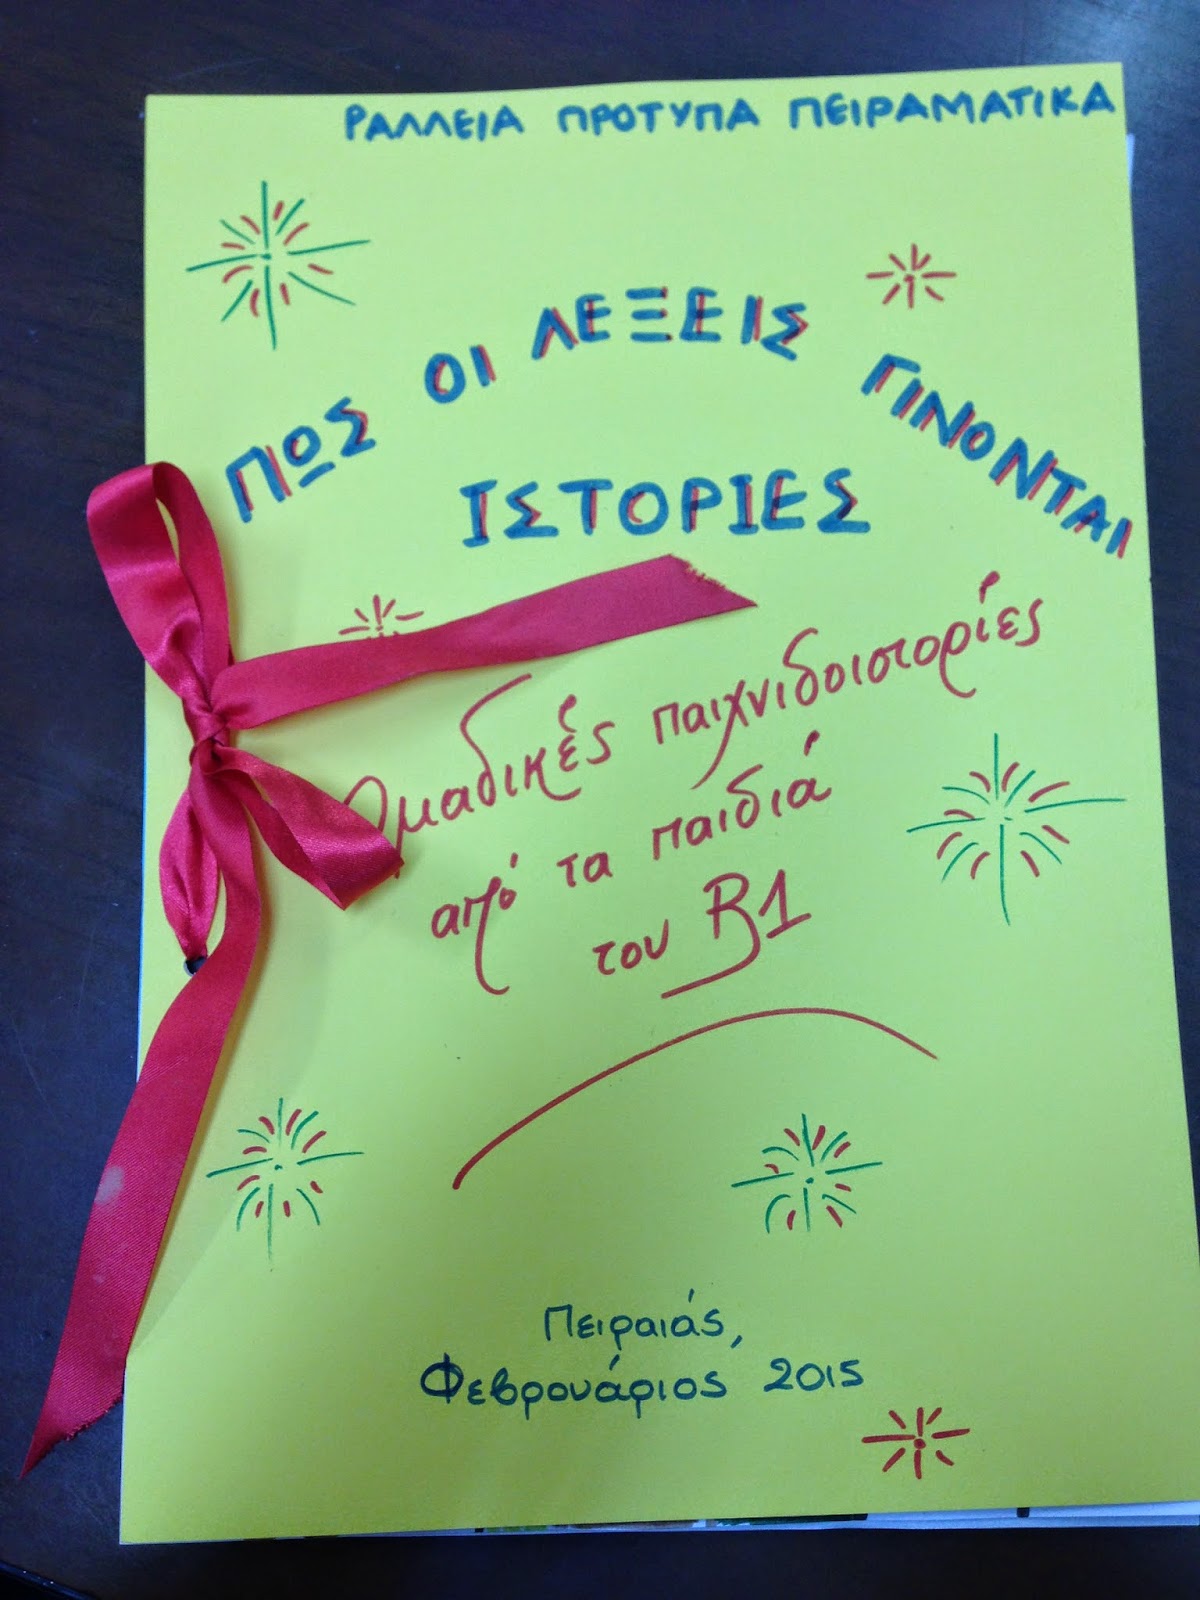 ΡΑΛΛΕΙΑ ΠΡΟΤΥΠΑ ΠΕΙΡΑΜΑΤΙΚΑ
ΠΩΣ ΟΙ ΛΕΞΕΙΣ ΓΙΝΟΝΤΑΙ
ΙΣΤΟΡΙΕΣ
Ομαδικές παιχνιδοιστορίες
από τα παιδιά
του Β1
Πειραιάς,
Φεβρουάριος 2015